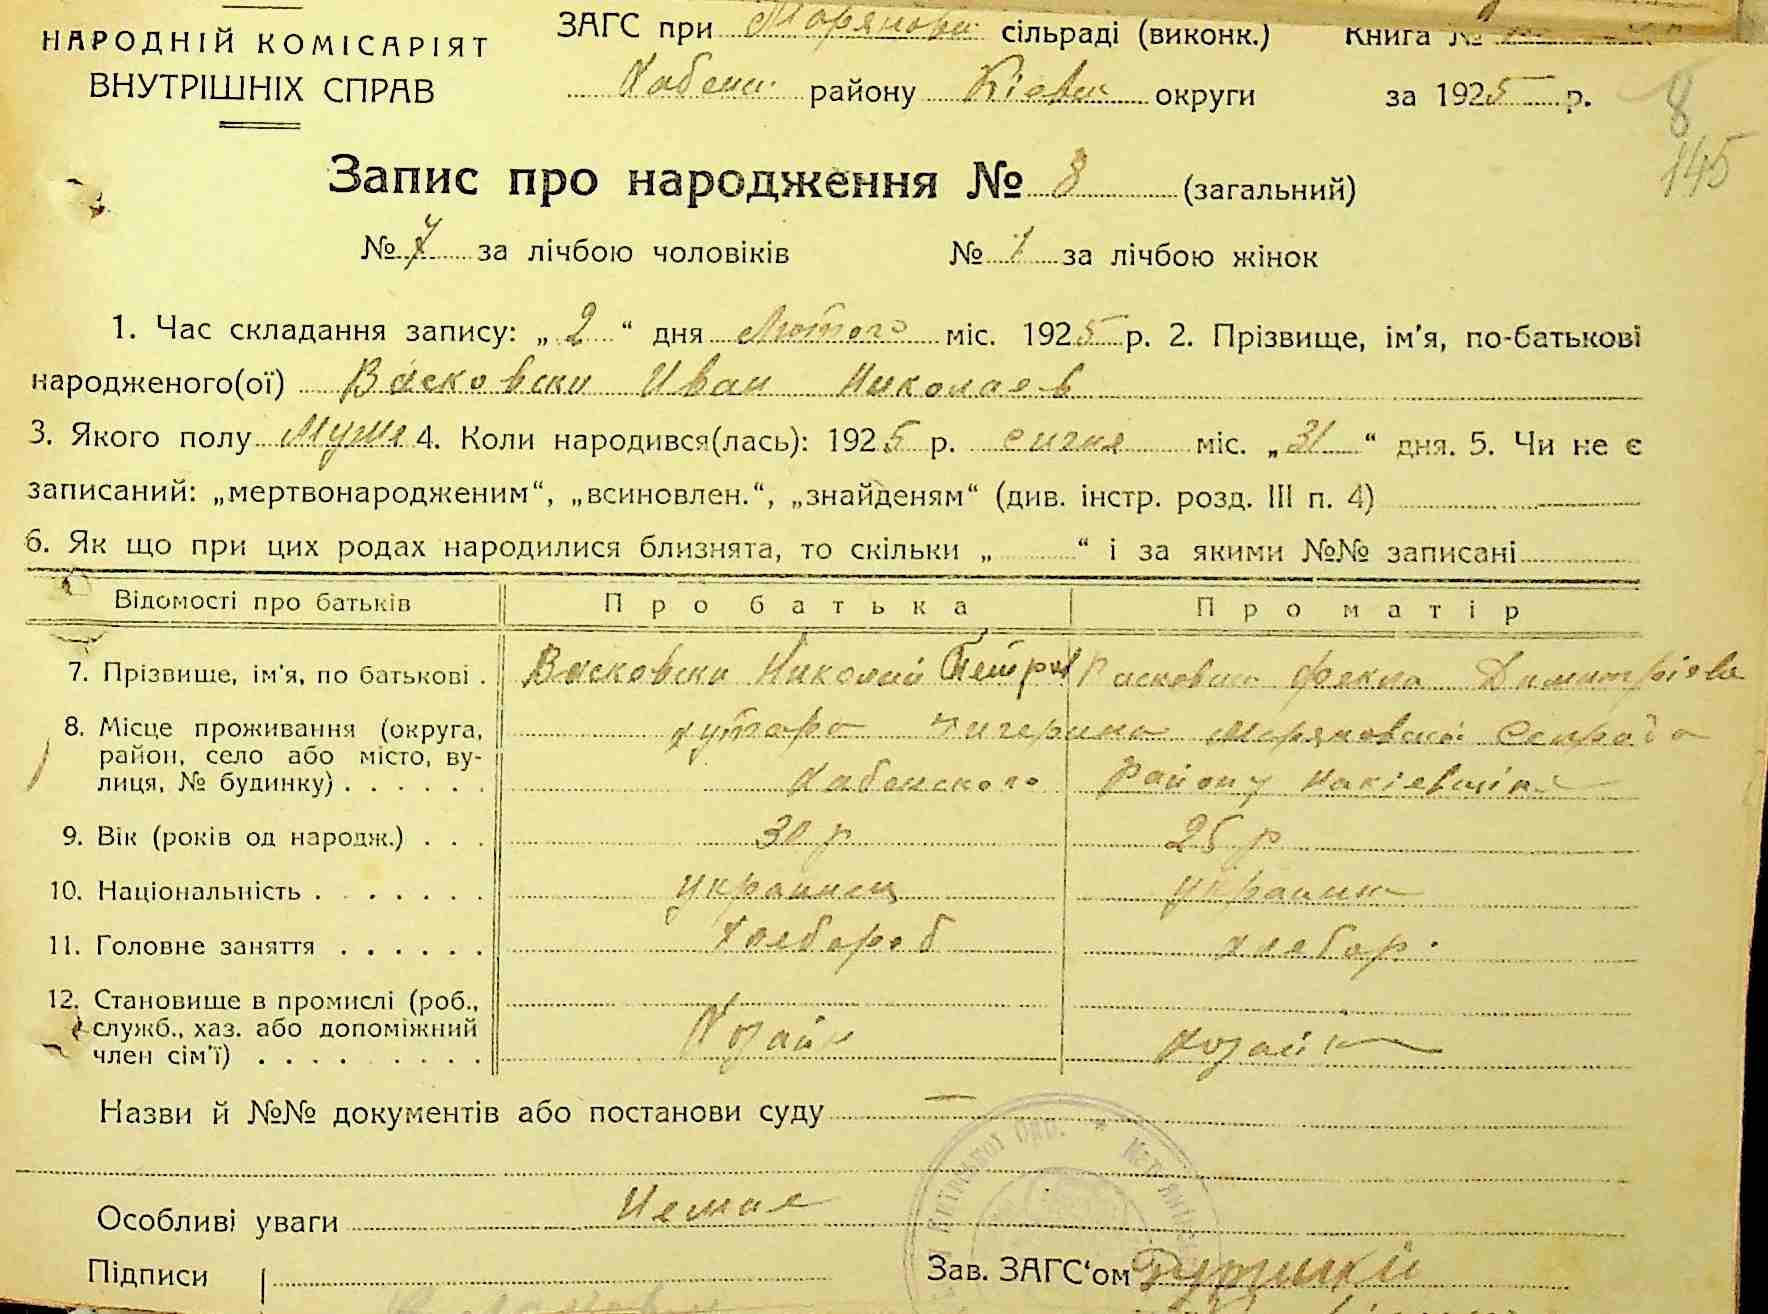 НАРОДНІЙ КОМІСАРІЯТ
ВНУТРІШНІХ СПРАВ
ЗАГС при Моряновк сільраді (виконк.) Книга №
Хабенск району Кіевск округи за 1925 р.
8
145
Запис про народження № 8 (загальний)
№ 7 за лічбою чоловіків № 1 за лічбою жінок
1. Час складання запису: „ 2 “ дня Лютого міс. 1925 р. 2. Прізвище, ім'я, по-батькові
народженого(ої) Васковски Иван Николаев
3. Якого полу Мужс 4. Коли народився(лась): 1925 р. сичня міс. „ 31 “ дня. 5. Чи не є
записаний: „мертвонародженим“, „всиновлен.“, „знайденям“ (див. інстр. розд. III п. 4)
6. Як що при цих родах народилися близнята, то скільки „ “ і за якими №№ записані
Відомості про батьків Про батька Про матір
7. Прізвище, ім'я, по батькові . Васковски Николай Петров Васковски Фекла Димитріева
8. Місце проживання (округа, хутора Моряновской
район, село або місто, ву- Хабенского Району
лиця, № будинку) . . . . . .
9. Вік (років од народж.) . . . 30 р 25 р
10. Національність . . . . . . . украинец украинк
11. Головне заняття . . . . . . Хлебороб хлебор.
12. Становище в промислі (роб.,
служб., хаз. або допоміжний Хозаін хозаінк
член сім'ї) . . . . . . . . .
Назви й №№ документів або постанови суду —
Особливі уваги Немае
Підписи Зав. ЗАГС‘ом